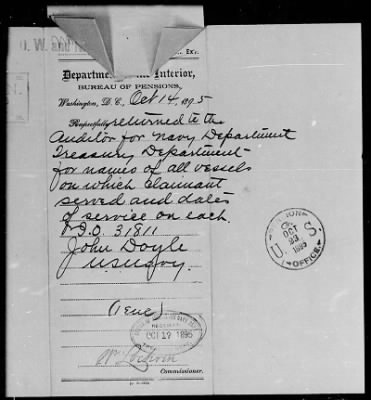 Department of the Interior,
BUREAU OF PENSIONS,
Washington, D. C., Oct 14, 1895
Respectfully returned to the
Auditor for Navy Department
Treasury Department
for names of all vessels
on which claimant
served and dates
of service on each.
John Doyle
U.S. Navy.
OCT 17 1895
Commissioner.
PENSION
U. S.
OCT
23
1895
OFFICE.